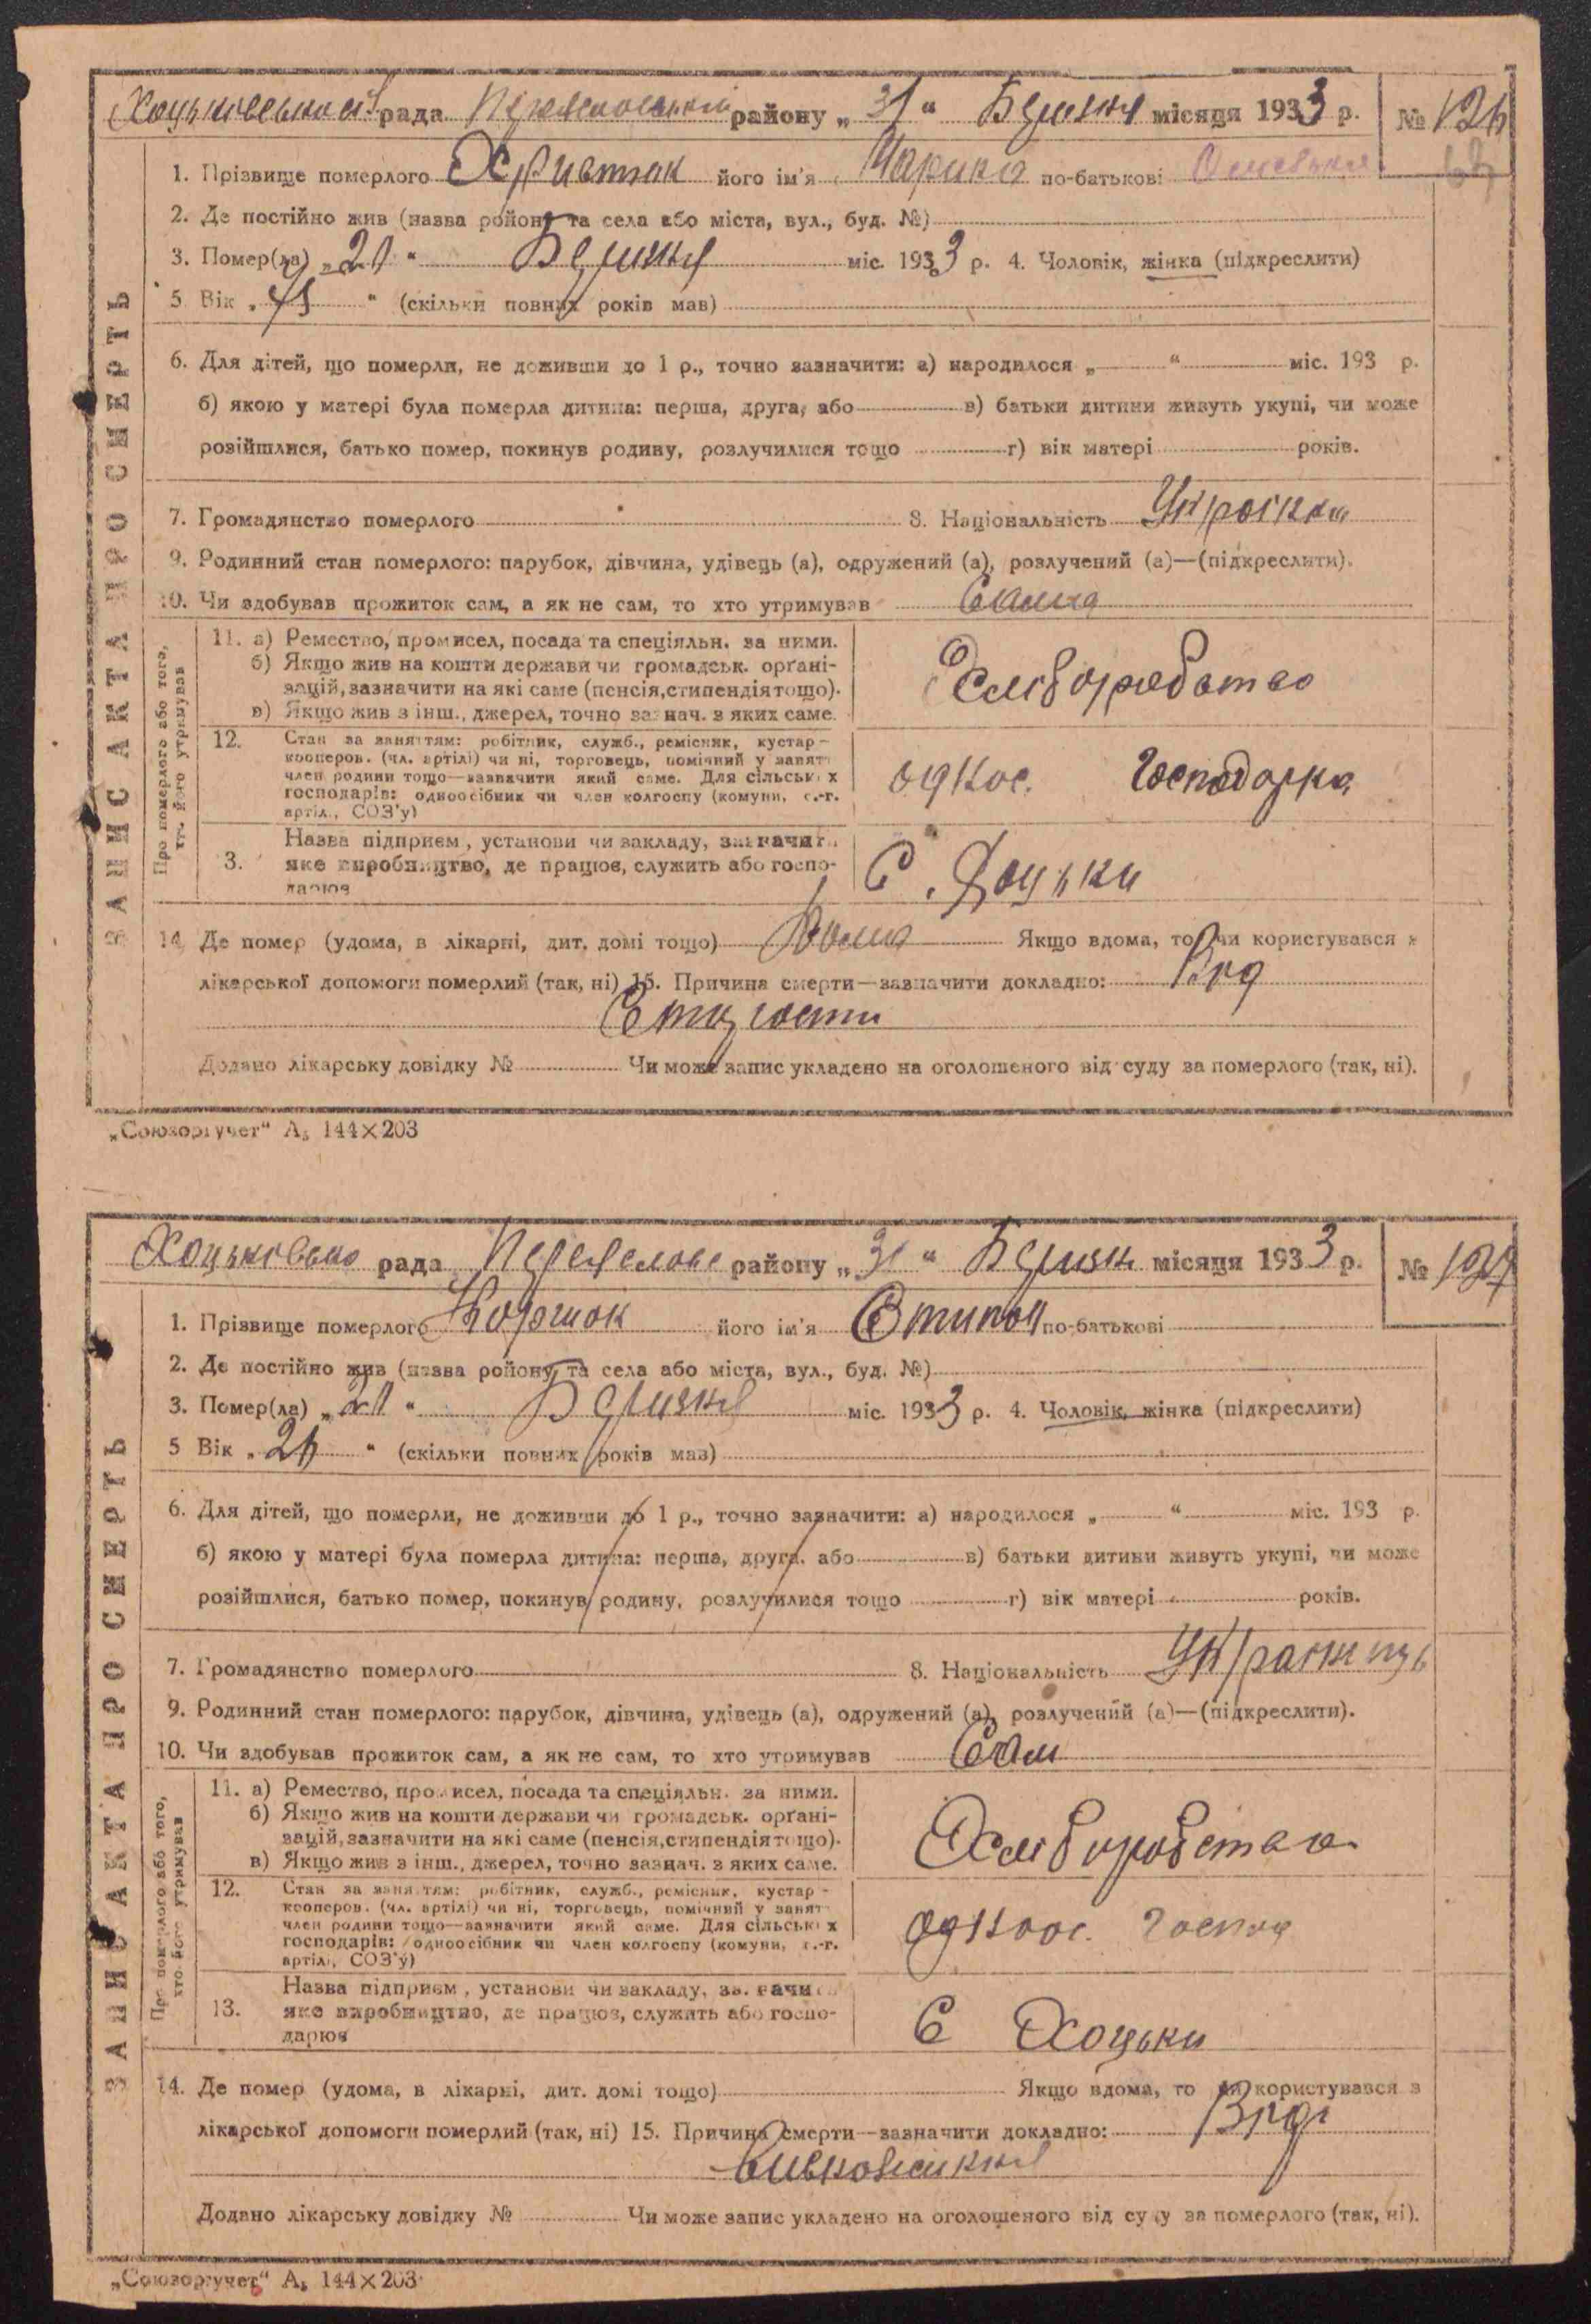 рада району „ 31 “ Березня місяця 1933 р. № 126
1. Прізвище померлого Христюк його ім'я Марина по-батькові
2. Де постійно жив (назва району та села або міста, вул., буд. №)
3. Помер(ла) „ 21 “ Березня міс. 1933 р. 4. Чоловік, жінка (підкреслити)
5 Вік „ 75 “ (скільки повних років мав)
6. Для дітей, що померли, не доживши до 1 р., точно зазначити: а) народилося „ “ міс. 193 р.
б) якою у матері була померла дитина: перша, друга, або в) батьки дитини живуть укупі, чи може
розійшлися, батько помер, покинув родину, розлучилися тощо г) вік матері років.
7. Громадянство померлого 8. Національність Українка
9. Родинний стан померлого: парубок, дівчина, удівець (а), одружений (а), розлучений (а)—(підкреслити).
10. Чи здобував прожиток сам, а як не сам, то хто утримував Сама
ЗАПИС АКТА ПРО СМЕРТЬ
Про померлого або того, хто його утримував
11. а) Ремество, промисел, посада та спеціяльн. за ними.
б) Якщо жив на кошти держави чи громадськ. орґані-
зацій, зазначити на які саме (пенсія, стипендія тощо).
в) Якщо жив з інш., джерел, точно зазнач. з яких саме.
Хліборобство
12. Стан за заняттям: робітник, служб., ремісник, кустар-
кооперов. (чл. артілі) чи ні, торговець, помічний у занят
член родини тощо—зазначити який саме. Для сільськ х
господарів: одноосібник чи член колгоспу (комуни, с.-г.
артіл., СОЗ'у)
однос. Господарка
3. Назва підприєм, установи чи закладу, зазначити
яке виробництво, де працює, служить або госпо-
дарює
С. Хоцьки
14. Де помер (удома, в лікарні, дит. домі тощо) Дома Якщо вдома, то чи користувався з
лікарської допомоги померлий (так, ні) 15. Причина смерти—зазначити докладно: Від
Старости
Додано лікарську довідку № Чи може запис укладено на оголошеного від суду за померлого (так, ні).
„Союзоргучет“ А₅ 144×203
рада району „ 31 “ Березня місяця 1933 р. № 127
1. Прізвище померлого Коржок його ім'я Степан по-батькові
2. Де постійно жив (назва району та села або міста, вул., буд. №)
3. Помер(ла) „ 21 “ Березня міс. 1933 р. 4. Чоловік, жінка (підкреслити)
5 Вік „ 26 “ (скільки повних років мав)
6. Для дітей, що померли, не доживши до 1 р., точно зазначити: а) народилося „ “ міс. 193 р.
б) якою у матері була померла дитина: перша, друга, або в) батьки дитини живуть укупі, чи може
розійшлися, батько помер, покинув родину, розлучилися тощо г) вік матері років.
7. Громадянство померлого 8. Національність
9. Родинний стан померлого: парубок, дівчина, удівець (а), одружений (а), розлучений (а)—(підкреслити).
10. Чи здобував прожиток сам, а як не сам, то хто утримував Сам
ЗАПИС АКТА ПРО СМЕРТЬ
Про померлого або того, хто його утримував
11. а) Ремество, промисел, посада та спеціяльн. за ними.
б) Якщо жив на кошти держави чи громадськ. орґані-
зацій, зазначити на які саме (пенсія, стипендія тощо).
в) Якщо жив з інш., джерел, точно зазнач. з яких саме.
Хліборобство
12. Стан за заняттям: робітник, служб., ремісник, кустар-
кооперов. (чл. артілі) чи ні, торговець, помічний у занят
член родини тощо—зазначити який саме. Для сільськ х
господарів: одноосібник чи член колгоспу (комуни, с.-г.
артіл., СОЗ'у)
одноос. господ
13. Назва підприєм, установи чи закладу, зазначи
яке виробництво, де працює, служить або госпо-
дарює
С Хоцьки
14. Де помер (удома, в лікарні, дит. домі тощо) Якщо вдома, то чи користувався з
лікарської допомоги померлий (так, ні) 15. Причина смерти—зазначити докладно: Від
Додано лікарську довідку № Чи може запис укладено на оголошеного від суду за померлого (так, ні).
„Союзоргучет“ А₅ 144×203